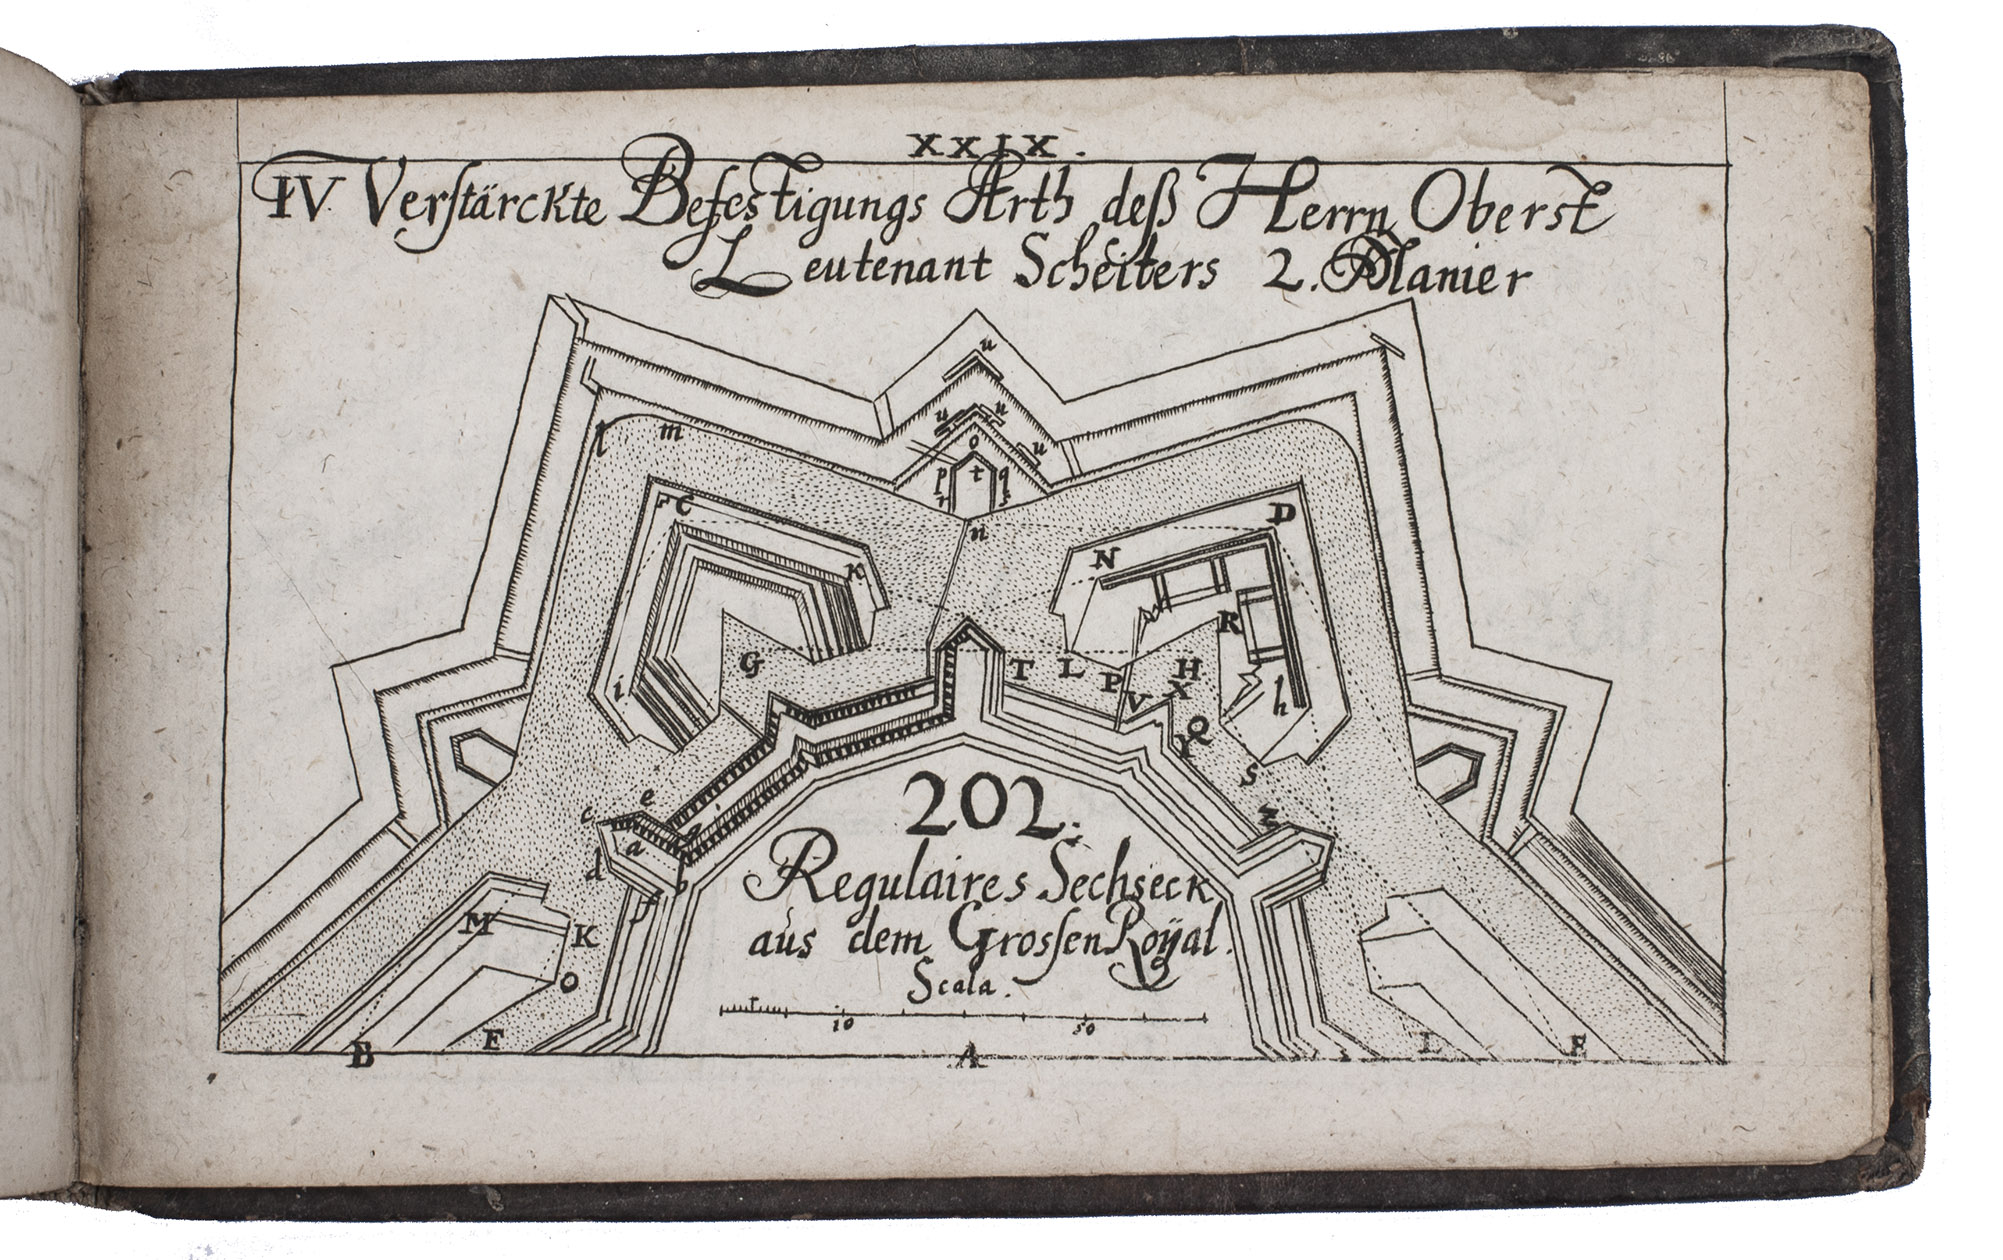 XXIX.
IV. Verstärckte Befestigungs Arth deß Herrn Oberst
Leutenant Scheiters 2. Manier
u
u u
o u
l m
p t q
r s
C D
n
N
K
R
G T L P H
i V X h
Q
Y
S
e
c z
a
d
202.
f b
Regulaires Sechseck
M K
aus dem Grossen Roÿal.
O Scala.
10 50
B F A L E